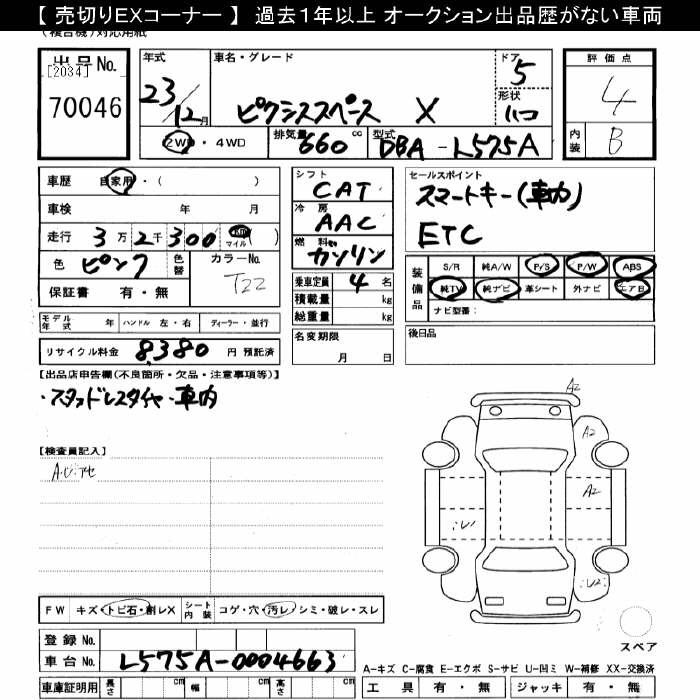 【 売切りEXコーナー 】 過去１年以上 オークション出品歴がない車両
(複合機)対応用紙
出品No.
[2034]
70046
年式
23/12月
車名・グレード
ピクシススペース X
ドア
5
形状
ハコ
評価点
4
内装
B
2WD・4WD
排気量 660 cc
型式 DBA-L575A
車歴 自家用・( )
車検 年 月
走行 3万2千300 km マイル ( )
色 ピンク
色替
カラーNo.
T22
保証書 有・無
シフト
CAT
冷房
AAC
燃料
ガソリン
乗車定員 4 名
積載量 kg
総重量 kg
セールスポイント
スマートキー(車内)
ETC
装備品
S/R 純A/W P/S P/W ABS
純TV 純ナビ 革シート 外ナビ エアB
ナビ型番：
モデル年式 年 ハンドル 左・右 ディーラー・並行
リサイクル料金 8,380 円 預託済
名変期限
月 日
後日品
【出品店申告欄(不良箇所・欠品・注意事項等)】
・スタッドレスタイヤ・車内
【検査員記入】
A2
A2
A2
U2
FW キズ・トビ石・割レX
シート内装 コゲ・穴・汚レ・シミ・破レ・スレ
スペア
登録No.
車台No. L575A-0004663
A-キズ C-腐食 E-エクボ S-サビ U-凹ミ W-補修 XX-交換済
車庫証明用 長さ cm 幅 cm 高さ cm
工具 有・無 ジャッキ 有・無